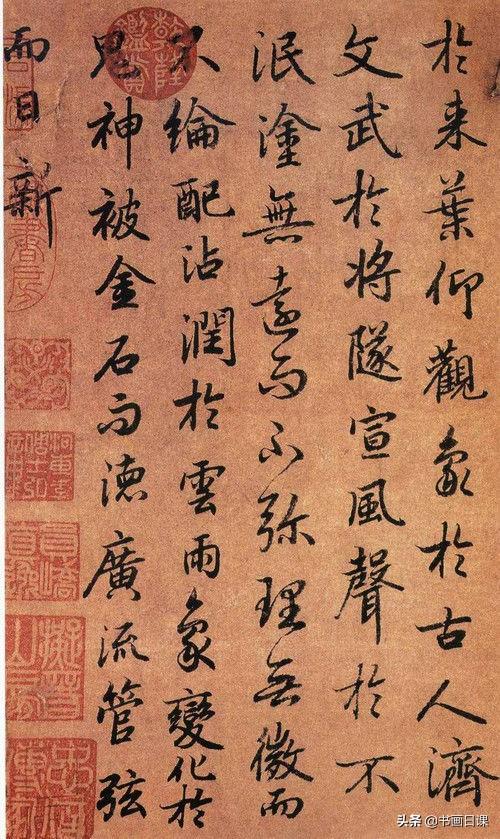 於来葉仰觀象於古人濟
文武於將隊宣風聲於不
泯塗無遠而不弥理无微而
不綸配沾潤於雲雨象變化於
鬼神被金石而德廣流管弦
而日新
乾隆鑑賞
头条 @书画日课